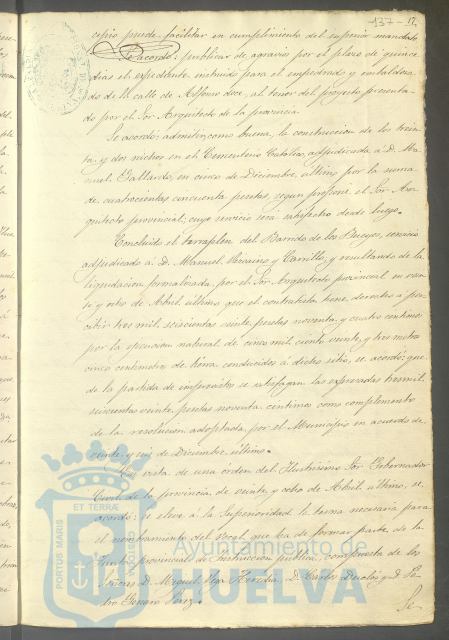 137-17,
cipio puede facilitar en cumplimiento del superior mandato
Se acordó: publicar de agravios por el plazo de quince
dias el expediente instruido para el empedrado y embaldosa-
do de la calle de Alfonso doce, al tenor del proyecto presenta-
do por el Sor. Arquitecto de la provincia.
Se acordó: admitir, como buena, la construccion de los trein-
ta y dos nichos en el Cementerio Católico, adjudicada á D. Ma-
nuel Gallardo, en cinco de Diciembre último por la suma
de cuatrocientas cincuenta pesetas, segun propone el Sor. Ar-
quitecto provincial; cuyo servicio será satisfecho desde luego.
Concluido el terraplen del Barrio de los Flueyes, servicio
adjudicado á D. Manuel Vizcaino y Carrillo, y resultando de la
liquidacion formalizada por el Sor. Arquitecto provincial en vein-
te y ocho de Abril último que el contratista tiene derecho á per-
cibir tres mil seiscientas veinte pesetas noventa y cuatro centimos
por la ejecucion natural de cinco mil ciento veinte y tres metros
cinco centimetros de tierra conducidos á dicho sitio, se acordó: que
de la partida de imprevistos se satisfagan las expresadas tres mil
seiscientas veinte pesetas noventa centimos como complemento
de la resolucion adoptada por el Municipio en acuerdo de
veinte y seis de Diciembre último.
vista de una orden del Ilustrisimo Sor. Gobernador
Civil de la provincia de veinte y ocho de Abril último, se
acordó: se eleve á la Superioridad la terna necesaria para
el nombramiento del Vocal que ha de formar parte de la
Junta provincial de Instruccion pública, compuesta de los
Señores D. Miguel Heredia, D. Carlos y D. Pe-
dro Genaro Perez.
Se
PORTUS MARIS
ET TERRÆ
CUSTODIA
Ayuntamiento de
HUELVA